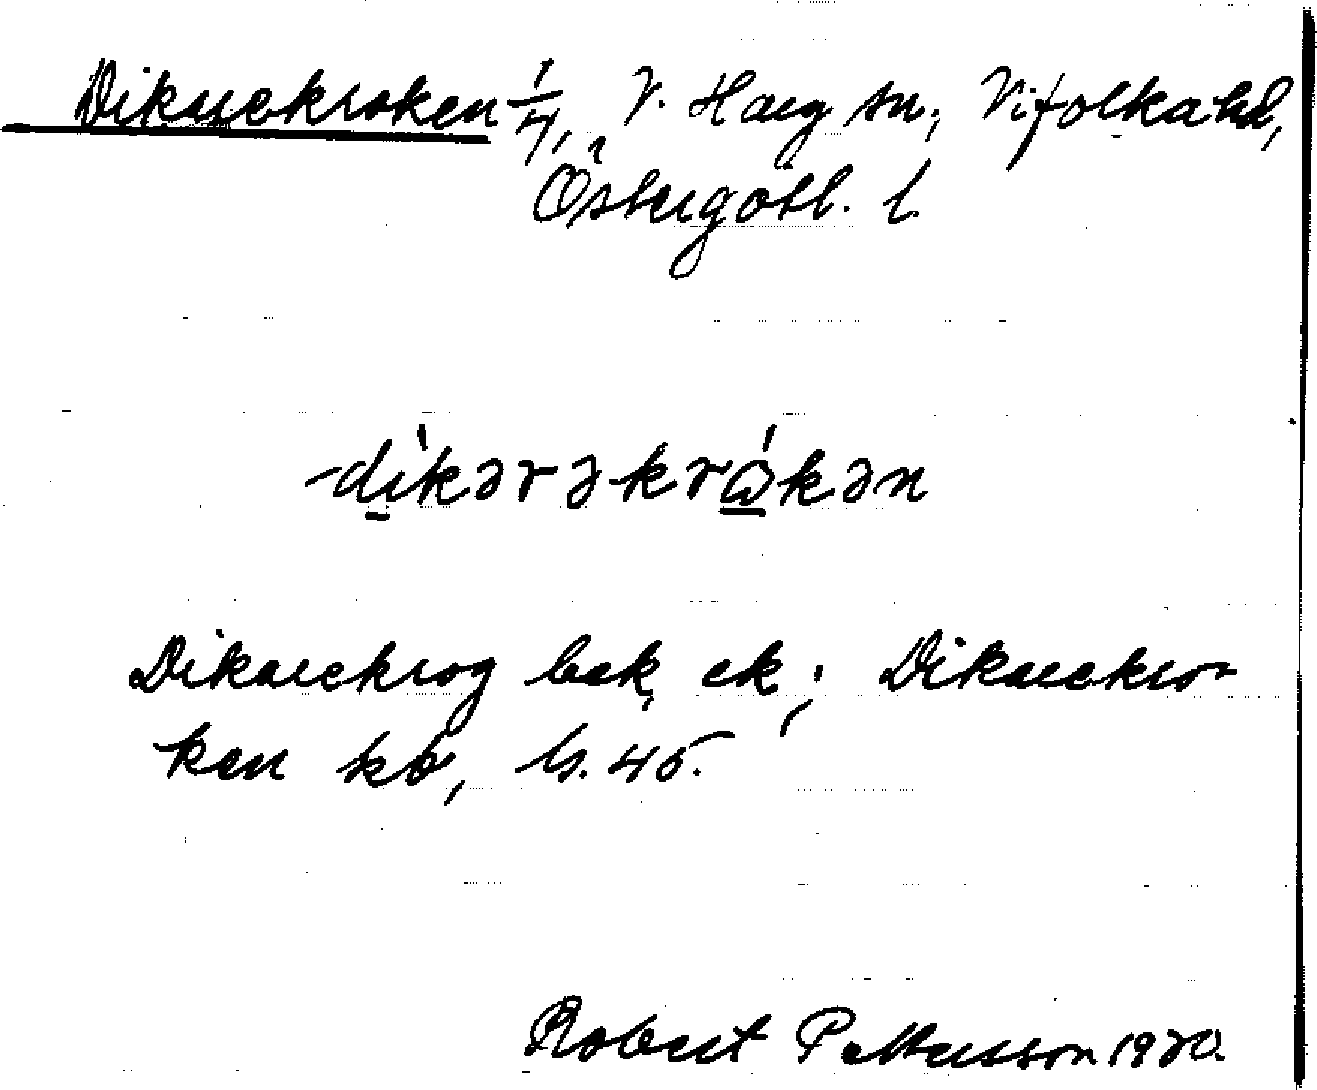 Dikarekroken 1/4, V. Harg sn, Vifolka hd,
Östergötl. l.
dikərəkrωkən
Dikarekrog bek ek; Dikarekro-
ken kb, ls. 45.
Robert Pettersson 1920.